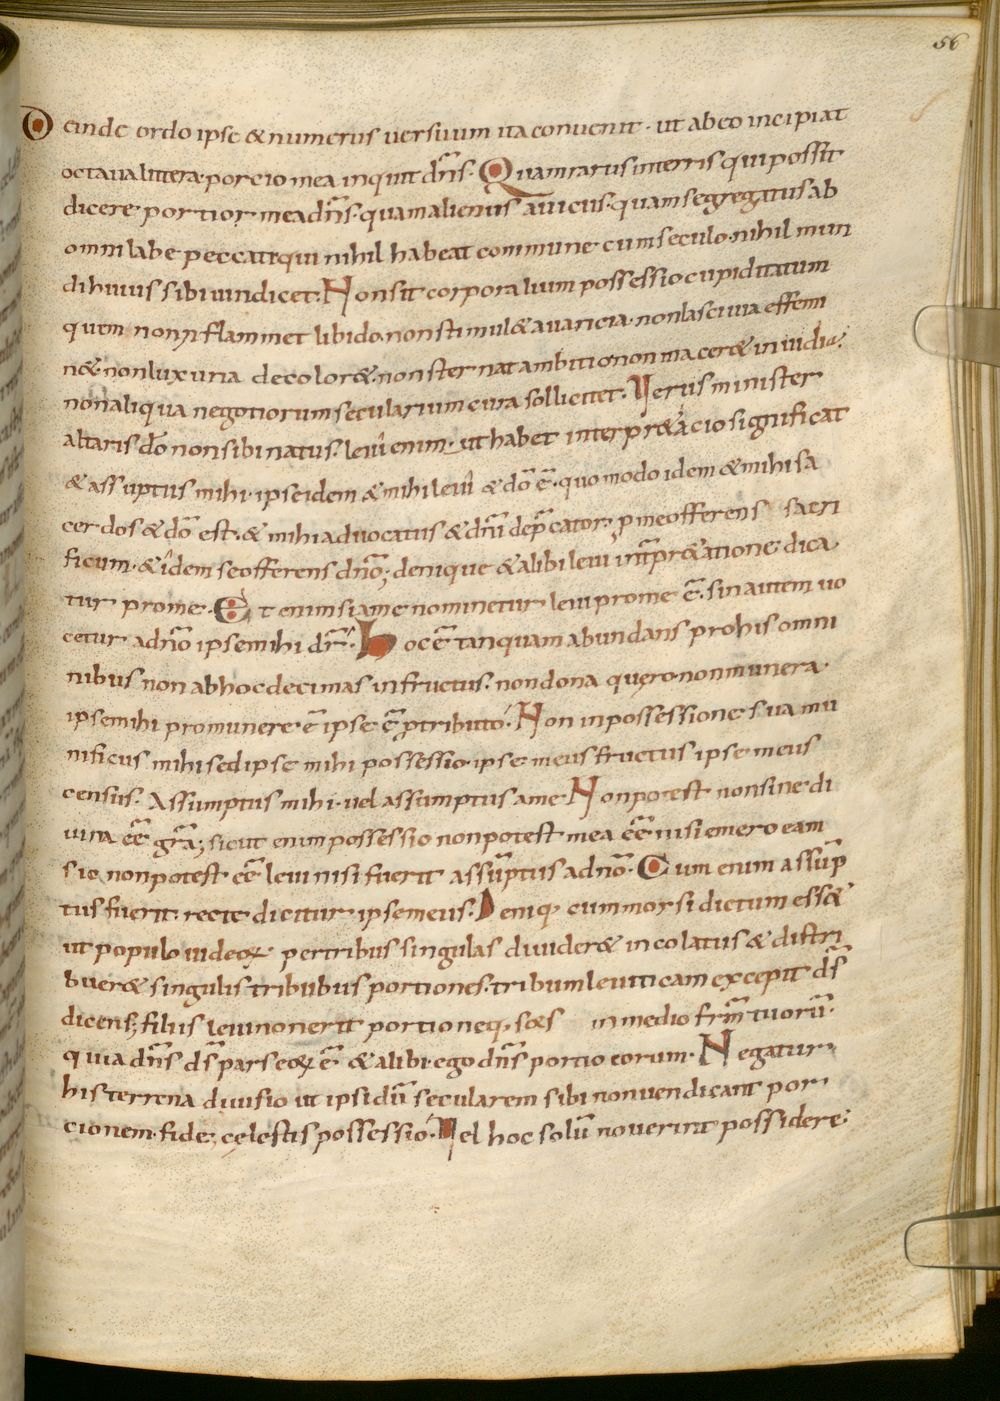 56
Deinde ordo ipse & numerus versuum ita conuenit · ut ab eo incipiat
octaua littera · porcio mea inquit dn̄s · Quam rarus in terris qui possit
dicere · portior mea dn̄s · quam alienus a uicus · quam segregatus ab
omni labe peccati · qui nihil habeat commune cum seculo · nihil mun
di huius sibi uindicet · Non sit corporalium possessio cupiditatum
quem non inflammet libido · non stimul& auaricia · non lasciuia effemi
n& · non luxuria decolor& · non sternat ambitio · non macer& inuidia ·
non aliqua negotiorum secularium cura sollicitet · Verus minister
altaris dō non sibi natus · leui enim · ut habet interpr&acio significat
& assuptus mihi · ipse idem & mihi leui & dō ē · quo modo idem & mihi sa
cerdos & dō est · & mihi aduocatus & dn̄i dep̄cator · p me offerens sacri
ficium · & idem se offerens dn̄o; denique & alibi leui int̄pr&atione dica
tur pro me · Et enim si a me nominetur leui pro me ē · sin autem uo
cetur a dn̄o ipse mihi dr̄ · hoc ē tanquam abundans pro his omni
nibus non ab hoc decimas in fructus · non dona quęro · non munera ·
ipse mihi pro munere ē ipse ē p tributo · Non in possessione sua mu
nificus mihi sed ipse mihi possessio · ipse meus fructus ipse meus
census · Assumptus mihi · uel assumptus a me Non potest non sine di
uina eē gr̄a; sicut enim possessio non potest mea eē nisi emero eam
sic non potest eē leui nisi fuerit assūptus a dn̄o · Cum enim assūp
tus fuerit recte dicitur ipse meus · Deniq, cum morsi dictum ess&
ut populo iudeoꝝ per tribus singulas diuider& incolatus & distri
buer& singulis tribubus portiones · tribum leuiticam excepit ds̄
dicens; filiis leui non erit portio neq, sors in medio fr̄m tuorū ·
quia dn̄s ds̄ pars eoꝝ ē & alibi · ego dn̄s portio eorum · Negatur
his terrena diuisio ut ipsi dū secularem sibi non uendicant por
cionem · fide; cęlestis possessio · Vel hoc solū nouerint possidere ·